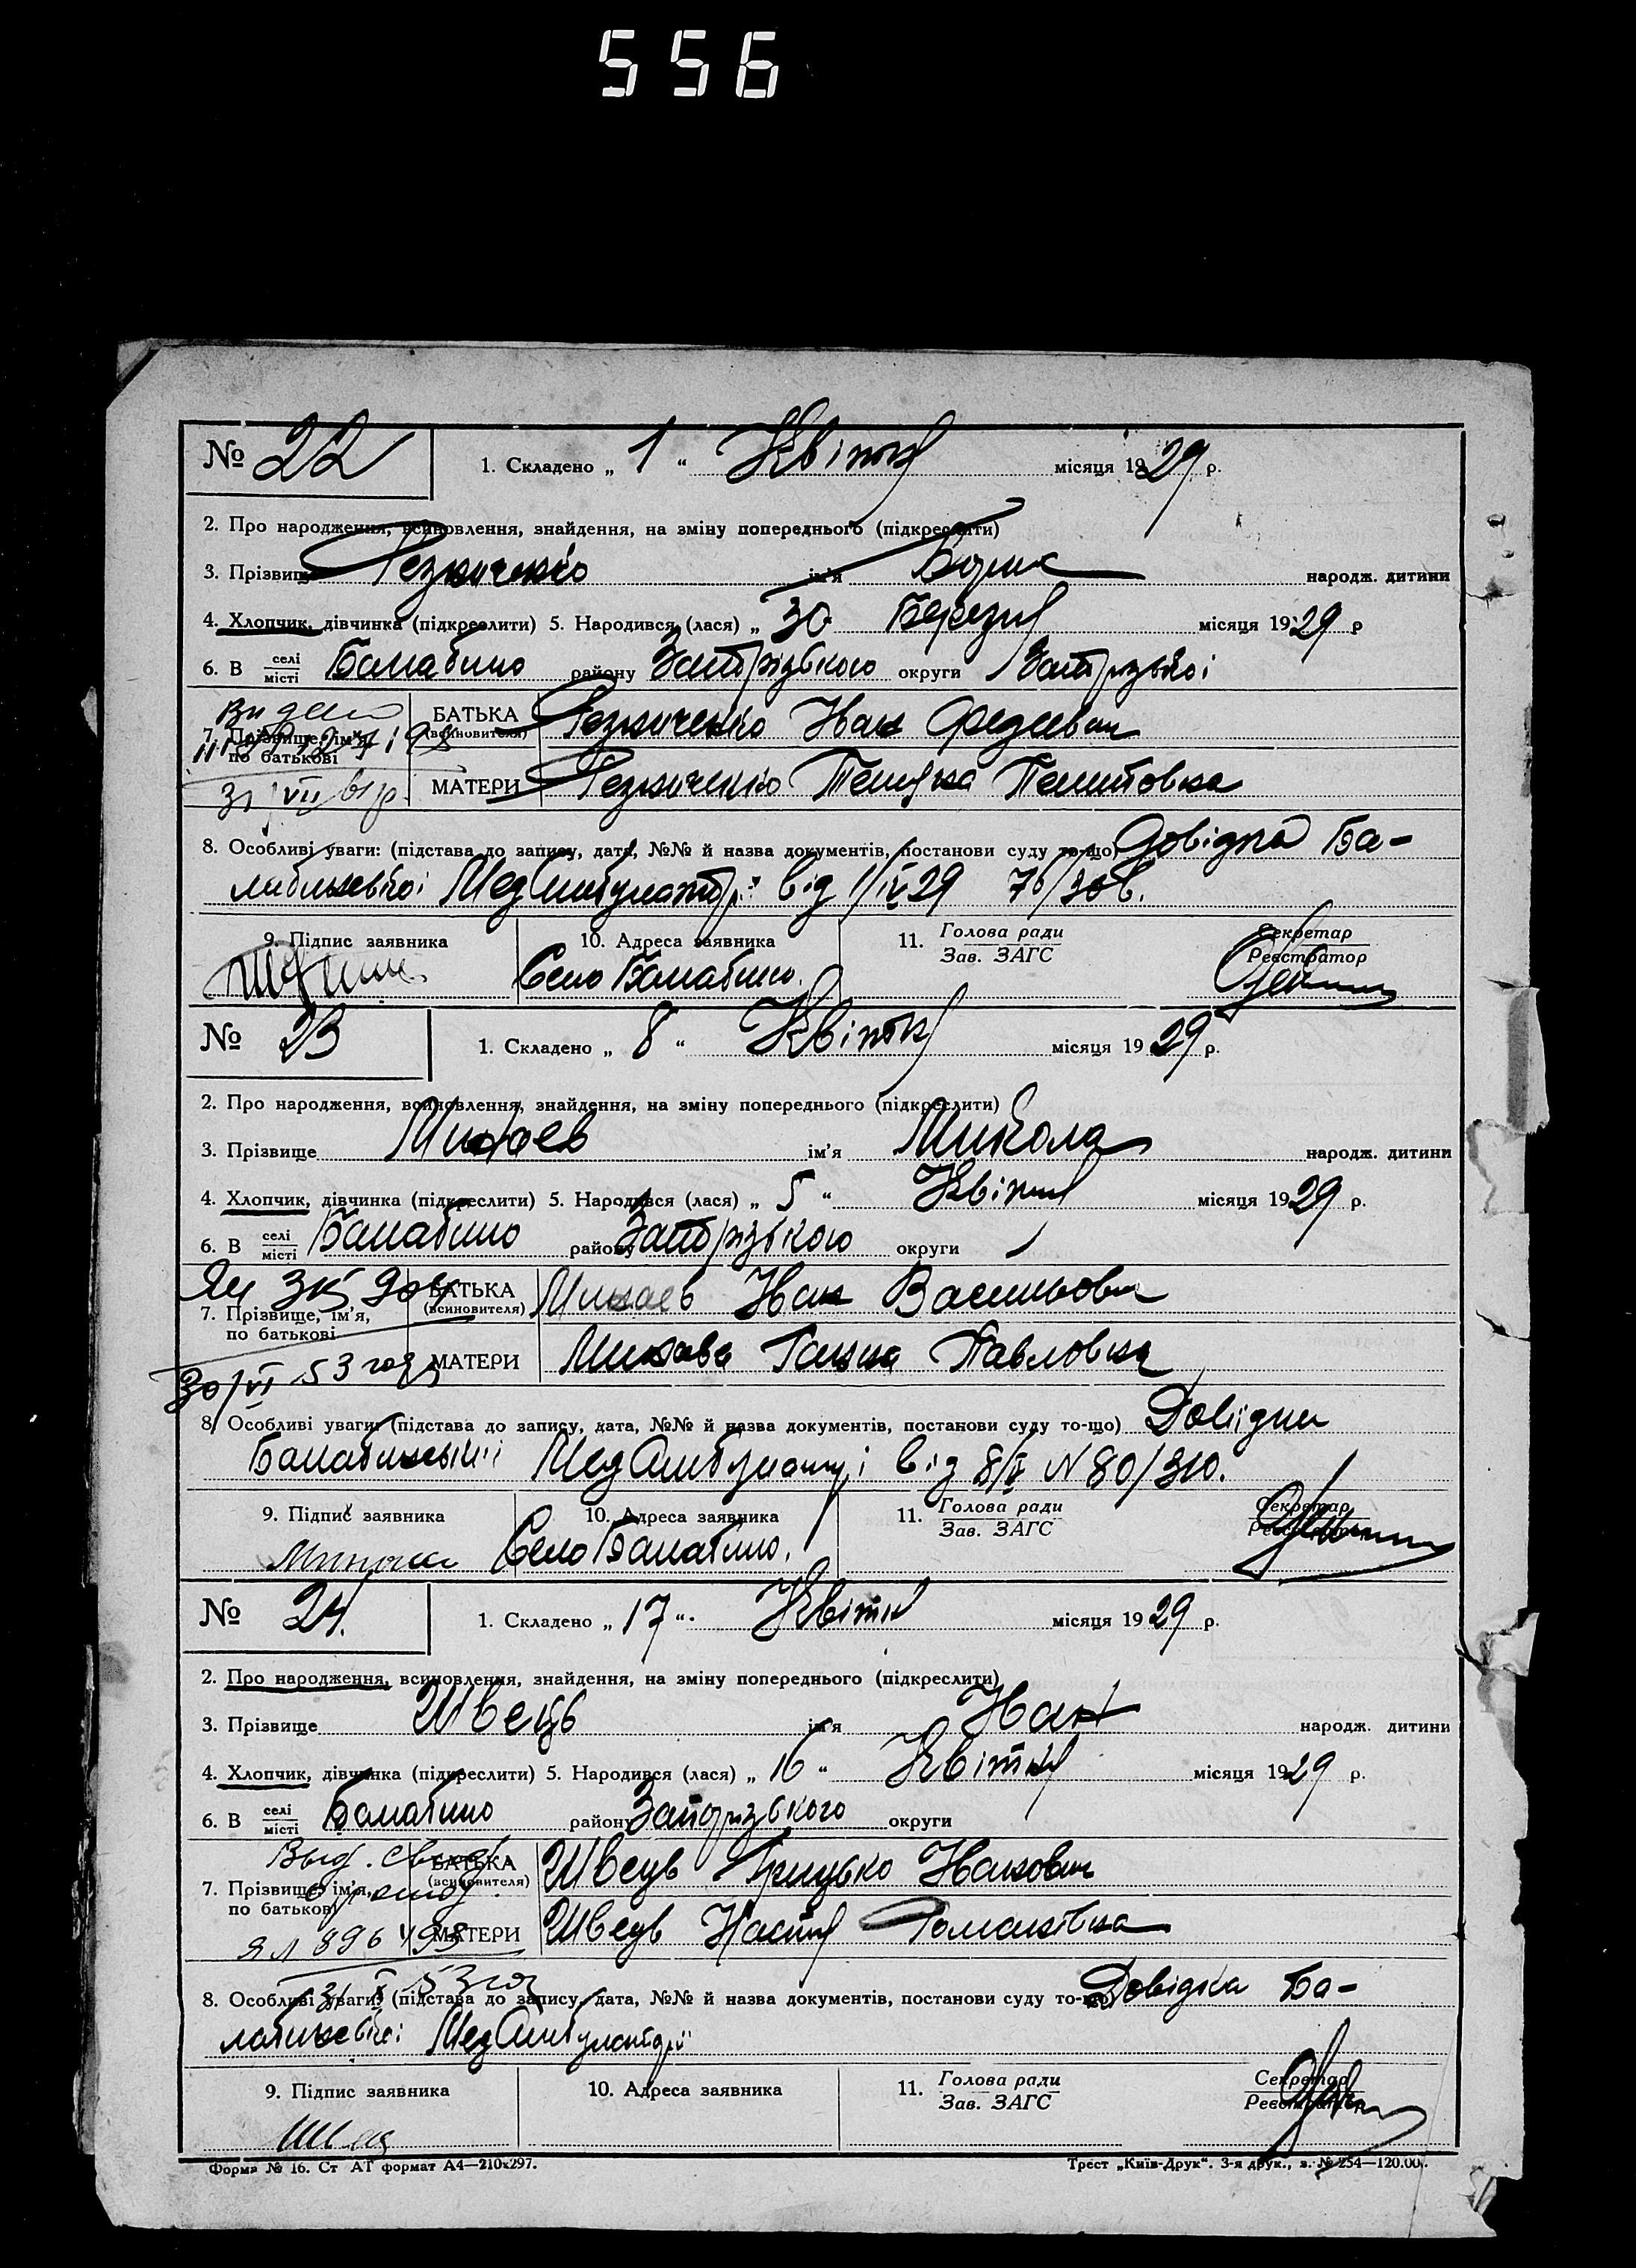 556
№ 22
1. Складено „ 1 “ Квітня місяця 1929 р.
2. Про народження, всиновлення, знайдення, на зміну попереднього (підкреслити)
3. Прізвище Резниченко ім'я Борис народж. дитини
4. Хлопчик, дівчинка (підкреслити) 5. Народився (лася) „ 30 Березня місяця 1929 р
6. В селі місті Балабино району Запорізького округи Запорізької
БАТЬКА (всиновителя) Резниченко Іван
7. Прізвище, ім'я, по батькові
31/VII
МАТЕРИ Резниченко
8. Особливі уваги: (підстава до запису, дата, №№ й назва документів, постанови суду то-що) Довідка Ба-
лабинської МедАмбулаторії від 1/IV 29
9. Підпис заявника 10. Адреса заявника 11. Голова ради Зав. ЗАГС Секретар Реєстратор
Село Балабино.
№ 23
1. Складено „ 8 “ Квітня місяця 1929 р.
2. Про народження, всиновлення, знайдення, на зміну попереднього (підкреслити)
3. Прізвище ім'я Микола народж. дитини
4. Хлопчик, дівчинка (підкреслити) 5. Народився (лася) „ 5 “ Квітня місяця 1929 р.
6. В селі місті Балабино району Запорізького округи
БАТЬКА (всиновителя) Іван Васильович
7. Прізвище, ім'я, по батькові
МАТЕРИ Ганна Павловна
30/VI 53 года
8. Особливі уваги: (підстава до запису, дата, №№ й назва документів, постанови суду то-що) Довідка
Балабинської МедАмбулаторії від 8/IV N 80/310.
9. Підпис заявника 10. Адреса заявника 11. Голова ради Зав. ЗАГС Секретар Реєстратор
Село Балабино.
№ 24.
1. Складено „ 17 “ Квітня місяця 1929 р.
2. Про народження, всиновлення, знайдення, на зміну попереднього (підкреслити)
3. Прізвище Швець ім'я Іван народж. дитини
4. Хлопчик, дівчинка (підкреслити) 5. Народився (лася) „ 16 “ Квітня місяця 1929 р.
6. В селі місті Балабино району Запорізького округи
Выд. свид.
БАТЬКА (всиновителя) Швець Грицько Іванович
7. Прізвище, ім'я, по батькові
МАТЕРИ Швець Настя Романовна
8. Особливі уваги: (підстава до запису, дата, №№ й назва документів, постанови суду то-що) Довідка Ба-
лабинської МедАмбулаторії
9. Підпис заявника 10. Адреса заявника 11. Голова ради Зав. ЗАГС Секретар Реєстратор
Форма № 16. Ст АТ формат А4—210x297.
Трест „Київ-Друк“. 3-я друк., з. № 254—120.00